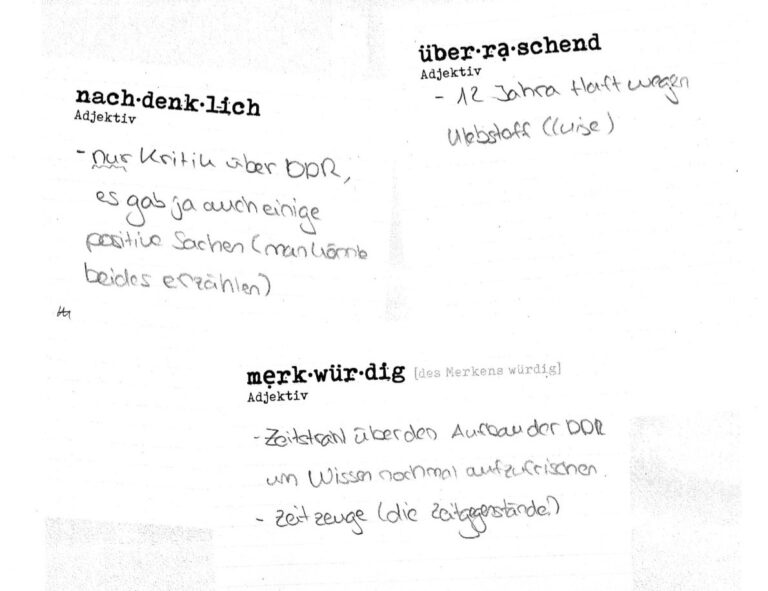 über·rạ·schend
Adjektiv
- 12 Jahre Haft wegen
Klebstoff (Luise)
nach·denk·lich
Adjektiv
- nur Kritik über DDR,
es gab ja auch einige
positive Sachen (man könnte
beides erzählen)
mẹrk·wür·dig [des Merkens würdig]
Adjektiv
- Zeitstrahl über den Aufbau der DDR
um Wissen nochmal aufzufrischen.
- Zeitzeuge (die Zeitgegenstände?)